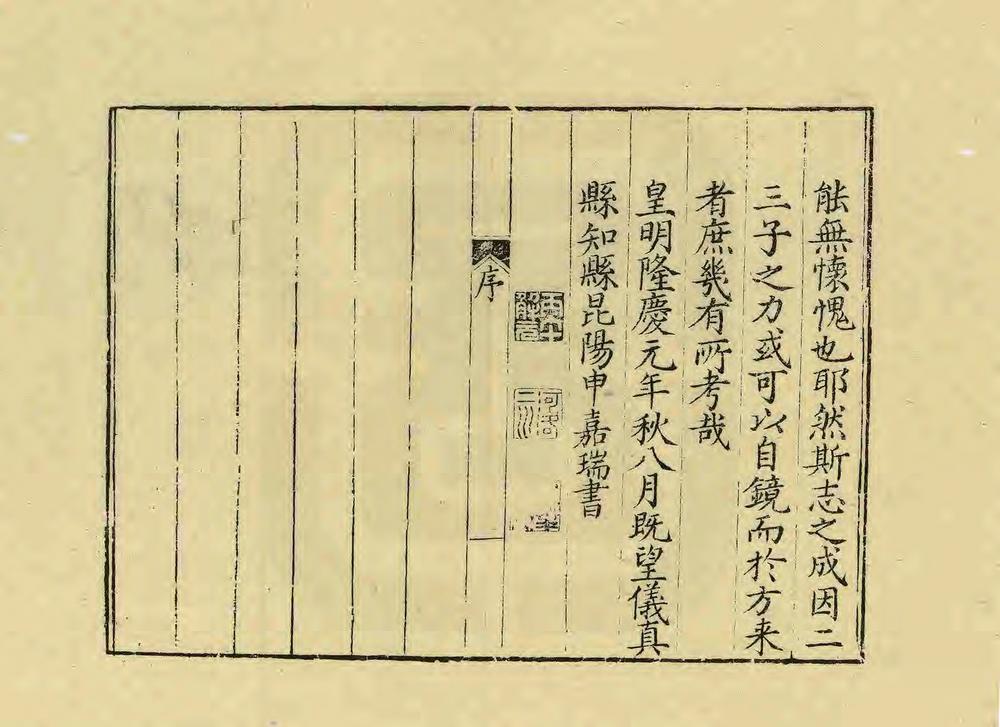 能無懷愧也耶然斯志之成因二
三子之力或可以自鏡而於方来
者庶幾有所考哉
皇明隆慶元年秋八月既望儀真
縣知縣昆陽申嘉瑞書
序